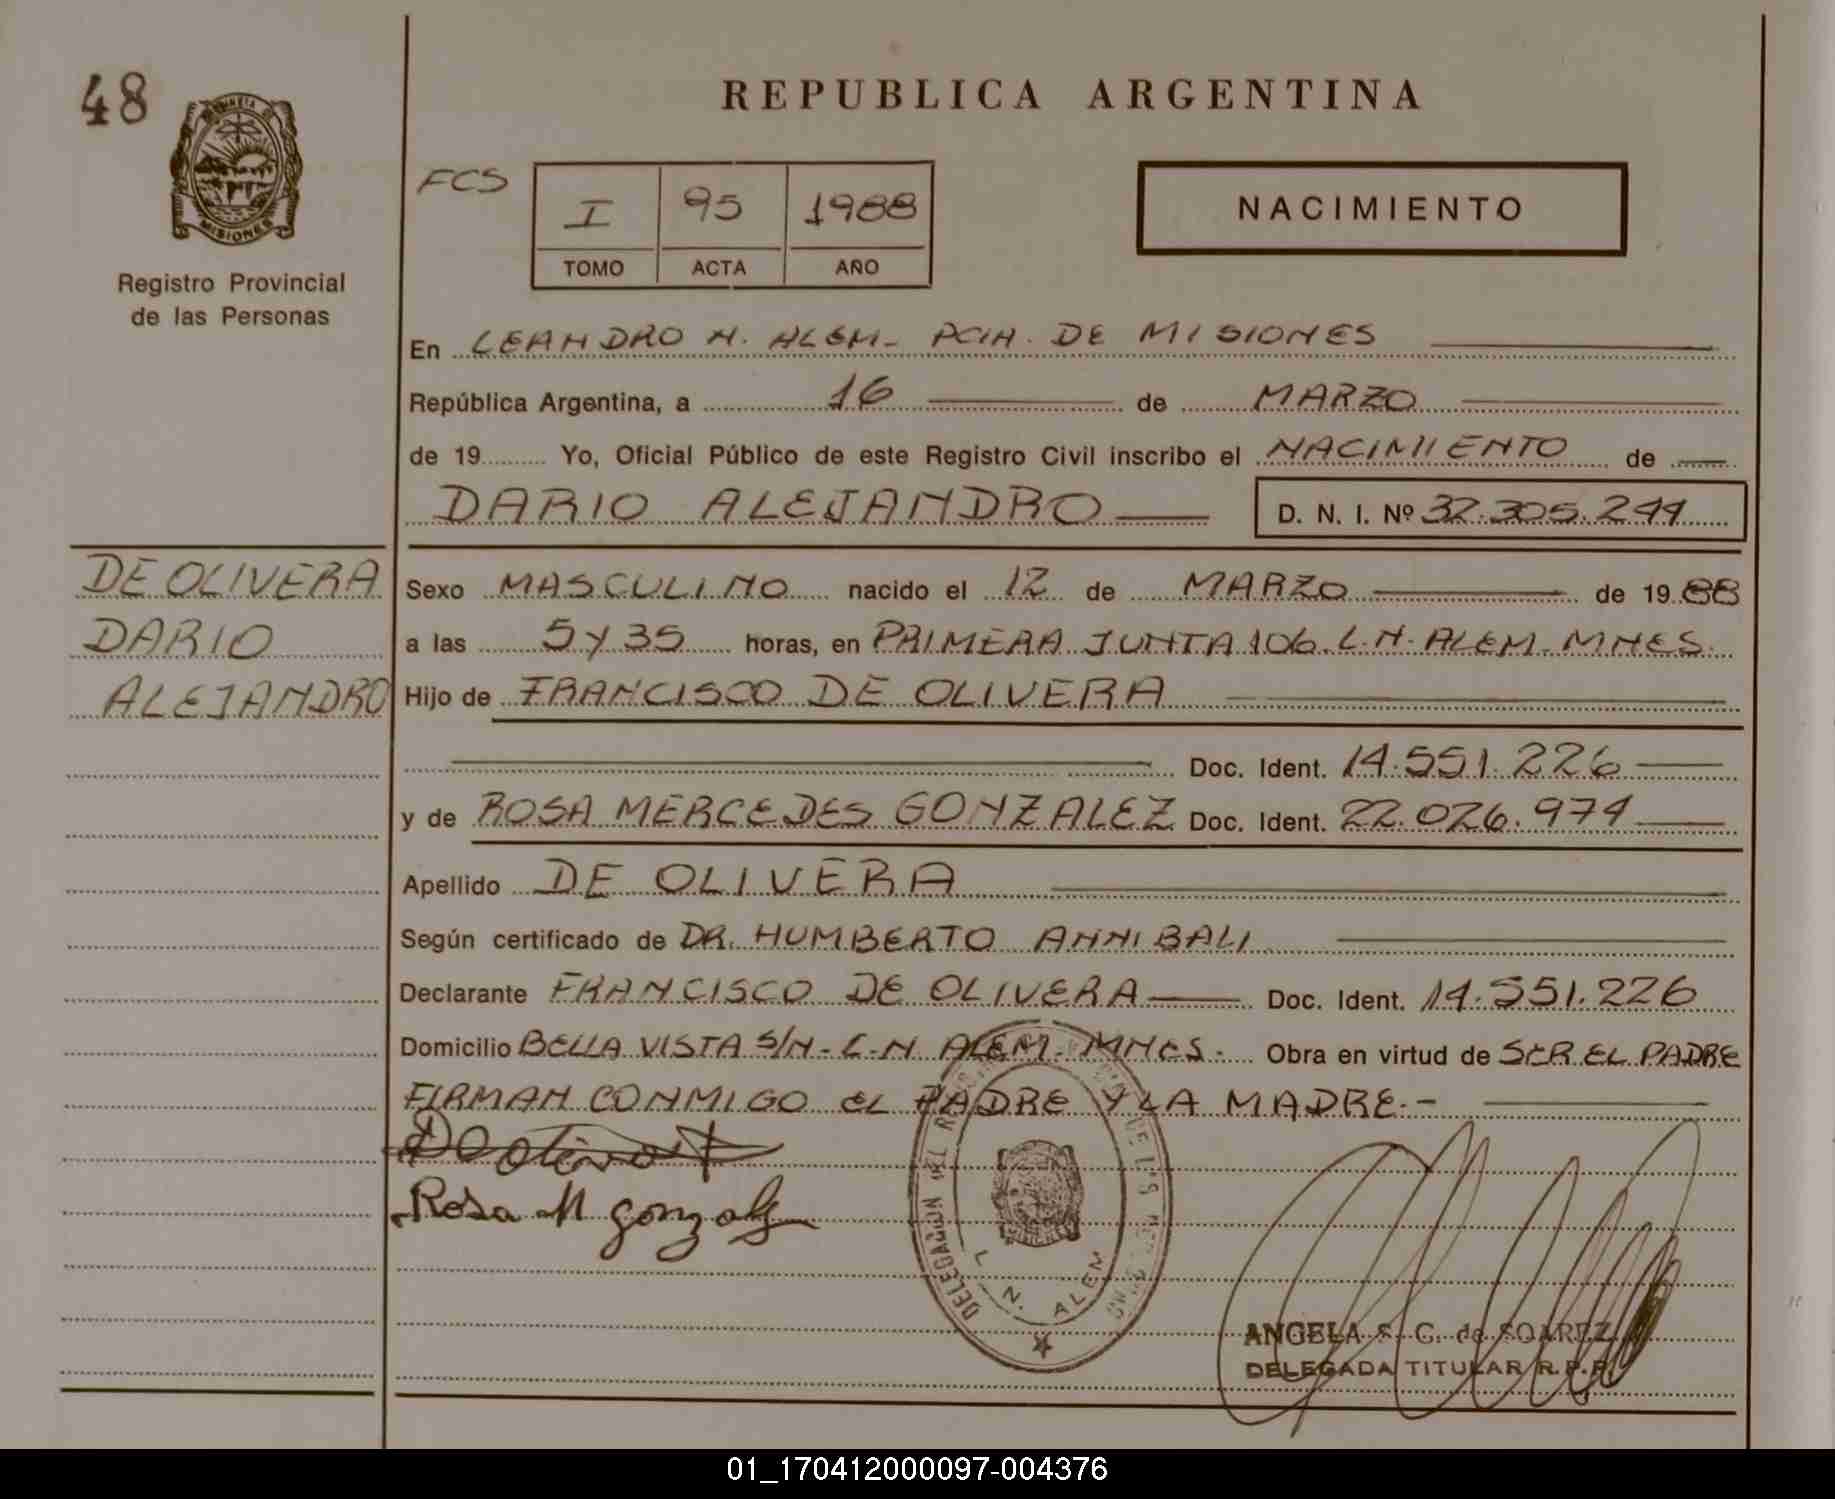 48
REPUBLICA ARGENTINA
MISIONES
Registro Provincial
de las Personas
FCS
I 95 1988
TOMO ACTA AÑO
NACIMIENTO
En LEANDRO N. ALEM - PCIA. DE MISIONES
República Argentina, a 16 de MARZO
de 19 Yo, Oficial Público de este Registro Civil inscribo el NACIMIENTO de
DARIO ALEJANDRO D. N. I. Nº 32.305.244
DE OLIVERA
DARIO
ALEJANDRO
Sexo MASCULINO nacido el 12 de MARZO de 1988
a las 5 y 35 horas, en PRIMERA JUNTA 106. L.N. ALEM - MNES.
Hijo de FRANCISCO DE OLIVERA
Doc. Ident. 14.551.226
y de ROSA MERCEDES GONZALEZ Doc. Ident. 22.026.974
Apellido DE OLIVERA
Según certificado de DR. HUMBERTO ANNIBALI
Declarante FRANCISCO DE OLIVERA Doc. Ident. 14.551.226
Domicilio BELLA VISTA S/N - L-N ALEM - MNES. Obra en virtud de SER EL PADRE
FIRMAN CONMIGO EL PADRE Y LA MADRE.-
Rosa M gonzalez
DELEGACION DEL
L. N. ALEM
ANGELA S. G. de SOAREZ
DELEGADA TITULAR R.P.P.
01_170412000097-004376